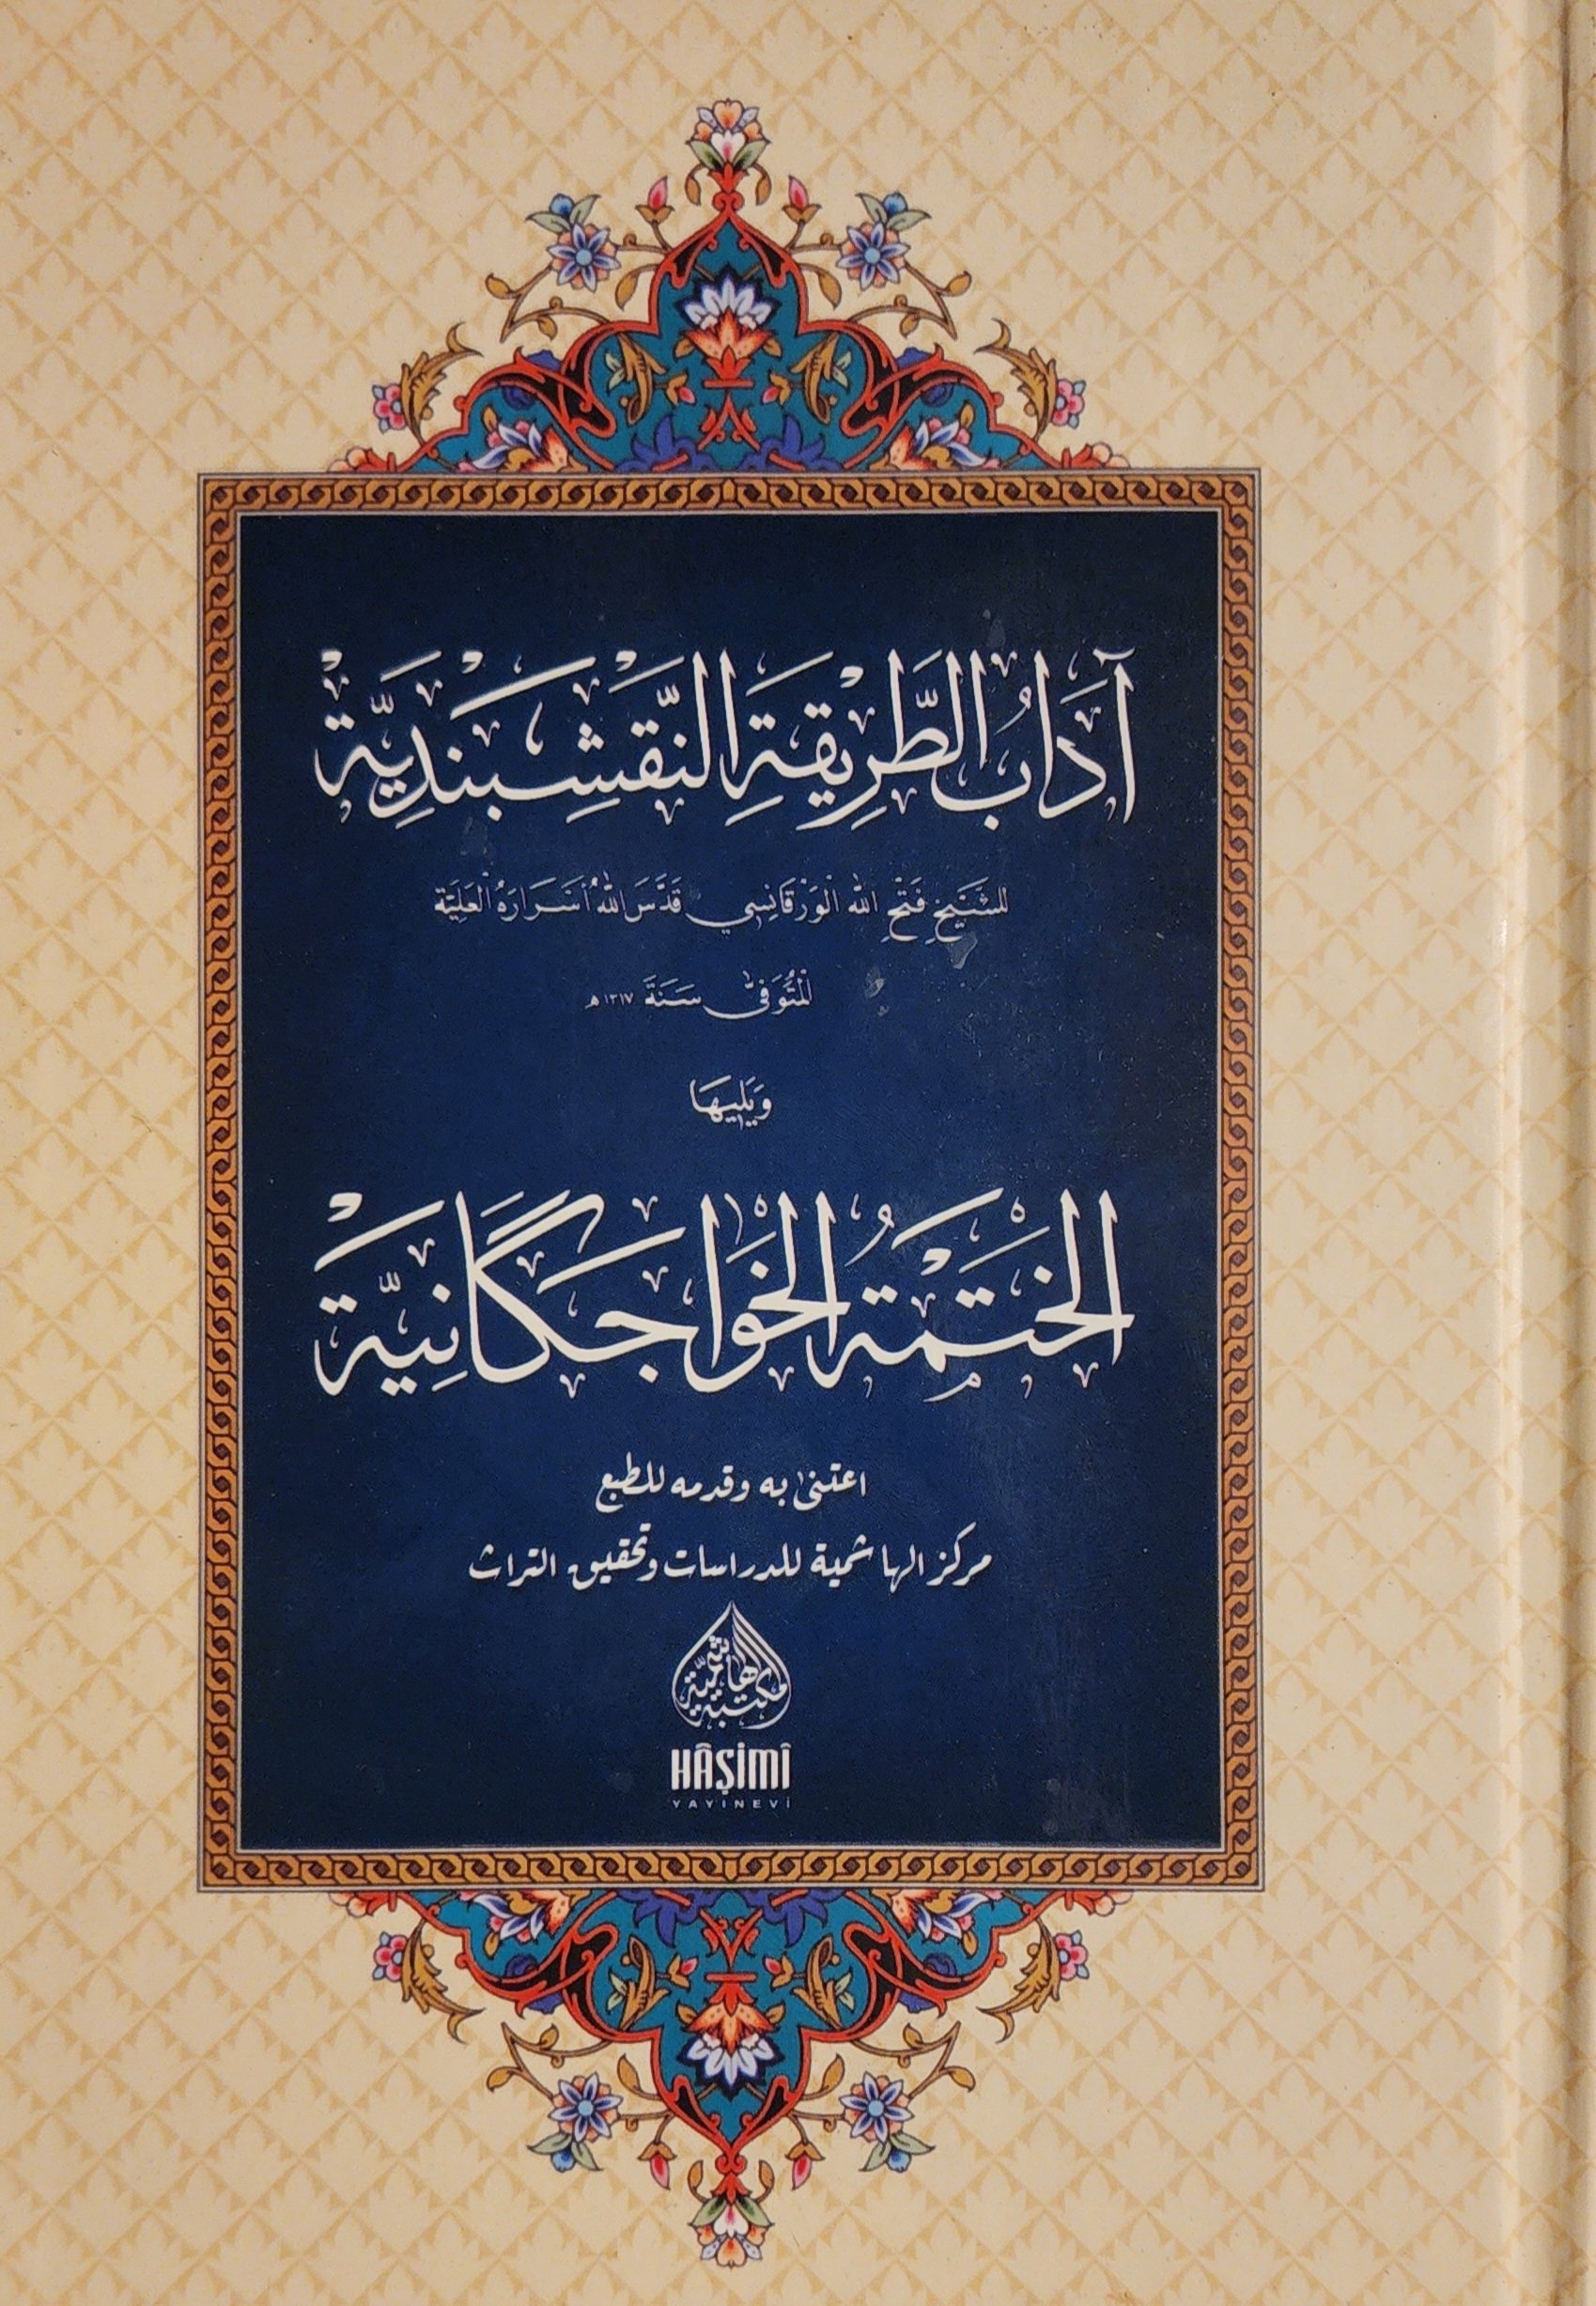 آدَابُ الطَّرِيقَةِ النَّقْشِبَنْدِيَّةْ
لِلشَّيْخِ فَتْحِ اللّٰه الْوَرْقَانِسِي قَدَّسَ اللّٰهُ أَسْرَارَهُ الْعَلِيَّة
الْمُتَوَفّٰى سَنَةَ ١٣١٧ هـ
وَيَلِيهَا
الْخَتْمَةُ الْخَوَاجَگَانِيَّةْ
اعتنى به وقدمه للطبع
مركز الهاشمية للدراسات وتحقيق التراث
مكتبة الهاشمية
HÂŞİMÎ
YAYINEVİ